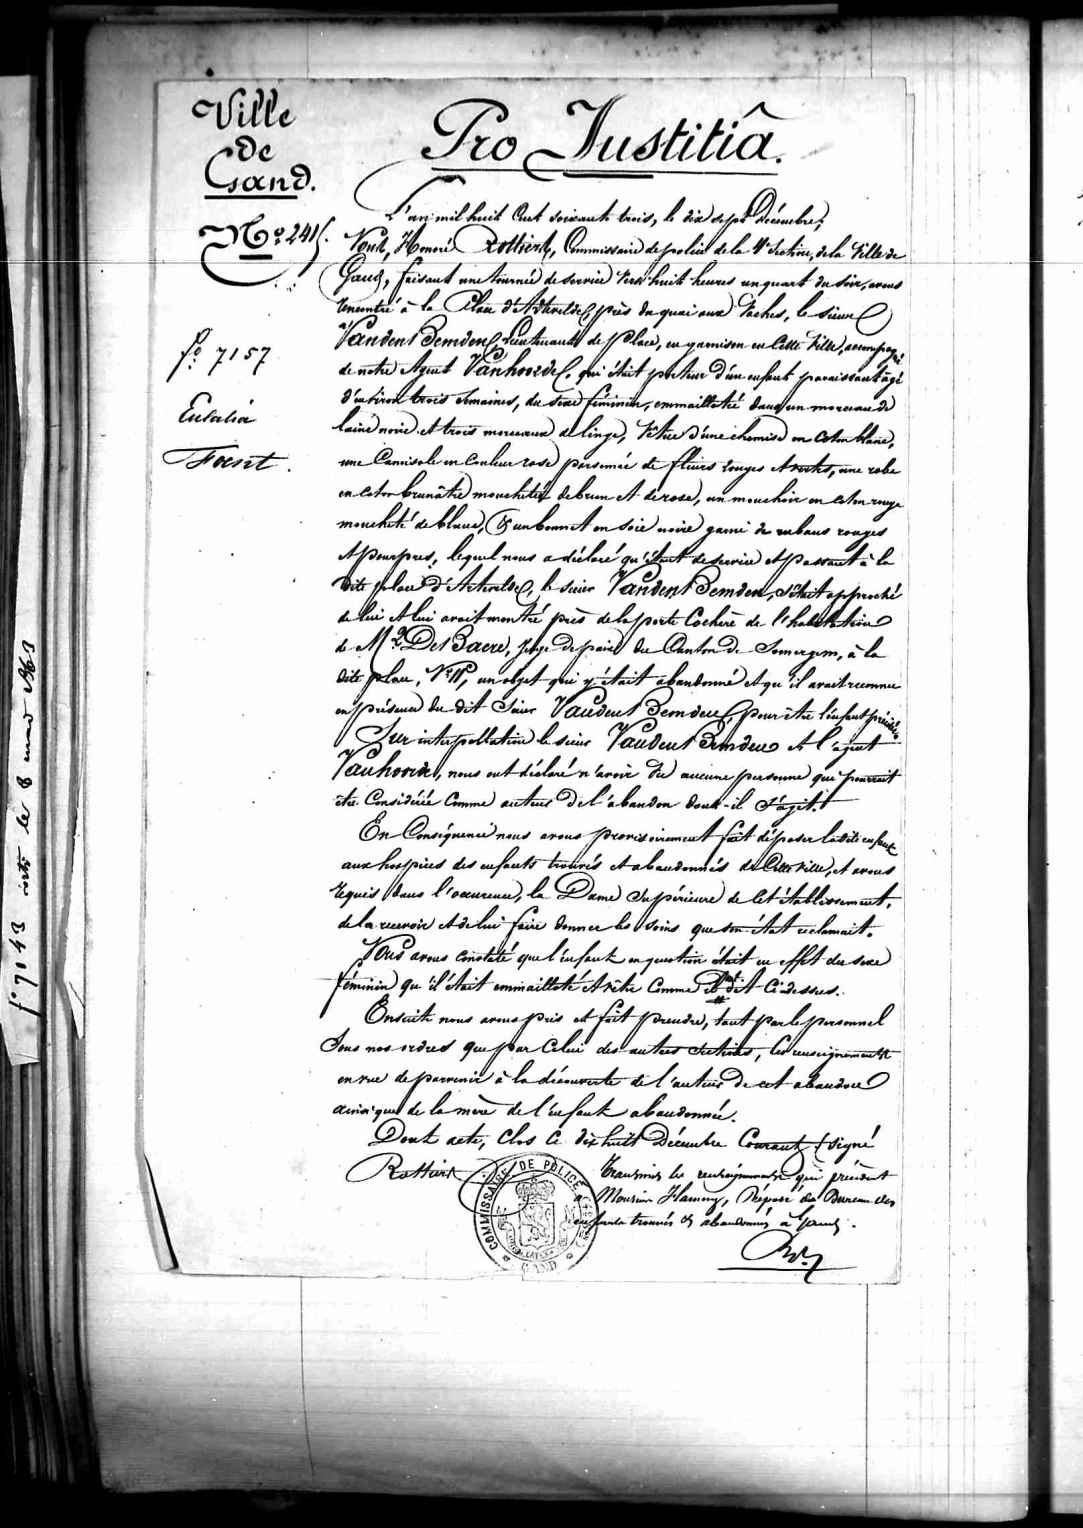 Ville
de
Gand.
Pro Justitiâ.
Nº 2415.
fº 7157
Eulalia
Foant.
L'an mil huit Cent soixante trois, le dix sept Décembre,
Nous, Honoré Rottiers, Commissaire de police de la 4e Section, de la Ville de
Gand, faisant une tournée de service vers huit heures un quart du soir, avons
rencontré à la Place d'Artevelde, près du quai aux Vaches, le sieur
Vanden Bemden, Lieutenant de Place, en garnison en Cette Ville, accompagné
de notre Agent Vanhoorde, qui était porteur d'un enfant paraissant âgé
d'environ trois semaines, du sexe féminin, emmailloté dans un morceau de
laine noire et trois morceaux de linge, Vêtu d'une chemise en coton blanc,
une Camisole en Couleur rose parsemée de fleurs rouges et vertes, une robe
en coton brunâtre mouchetée de brun et de rose, un mouchoir en coton rouge
moucheté de blanc, & un bonnet en soie noire garni de rubans rouges
et pourpres, lequel nous a déclaré qu'étant de service et passant à la
dite place d'Artevelde, le sieur Vanden Bemden, s'était approché
de lui et lui avait montré près de la porte Cochère de l'habitation
de Mr De Baere, juge de paix du Canton de Somergem, à la
dite place, Nº 11, un objet qui y était abandonné et qu'il avait reconnu
en présence du dit Sieur Vanden Bemden, pour être l'enfant précité.
Sur interpellation le sieur Vanden Bemden et l'agent
Vanhoorde, nous ont déclaré n'avoir vu aucune personne qui pourrait
être Considérée Comme auteur de l'abandon dont-il s'agit.
En Conséquence nous avons provisoirement fait déposer ladite enfant
aux hospices des enfants trouvés et abandonnés de Cette Ville, et avons
requis dans l'occurence, la Dame Supérieure de Cet établissement,
de la recevoir et de lui faire donner les soins que son état reclamait.
Nous avons constaté que l'enfant en question était en effet du sexe
féminin qu'il était emmailloté et vêtu Comme est dit Ci-dessus.
Ensuite nous avons pris et fait prendre, tant par le personnel
Sous nos ordres que par Celui des autres Sections, les renseignements
en vue de parvenir à la découverte de l'auteur de cet abandon
ainsi que de la mère de l'enfant abandonnée.
Dont acte, Clos Ce dix huit Décembre Courant (Signé
Rottiers
Transmis les renseignements qui précèdent
Monsieur Flameng, Préposé du Bureau des
enfants trouvés et abandonnés à Gand.
COMMISSAIRE DE POLICE
GAND
fº 7143 inté le 8 mars 1863